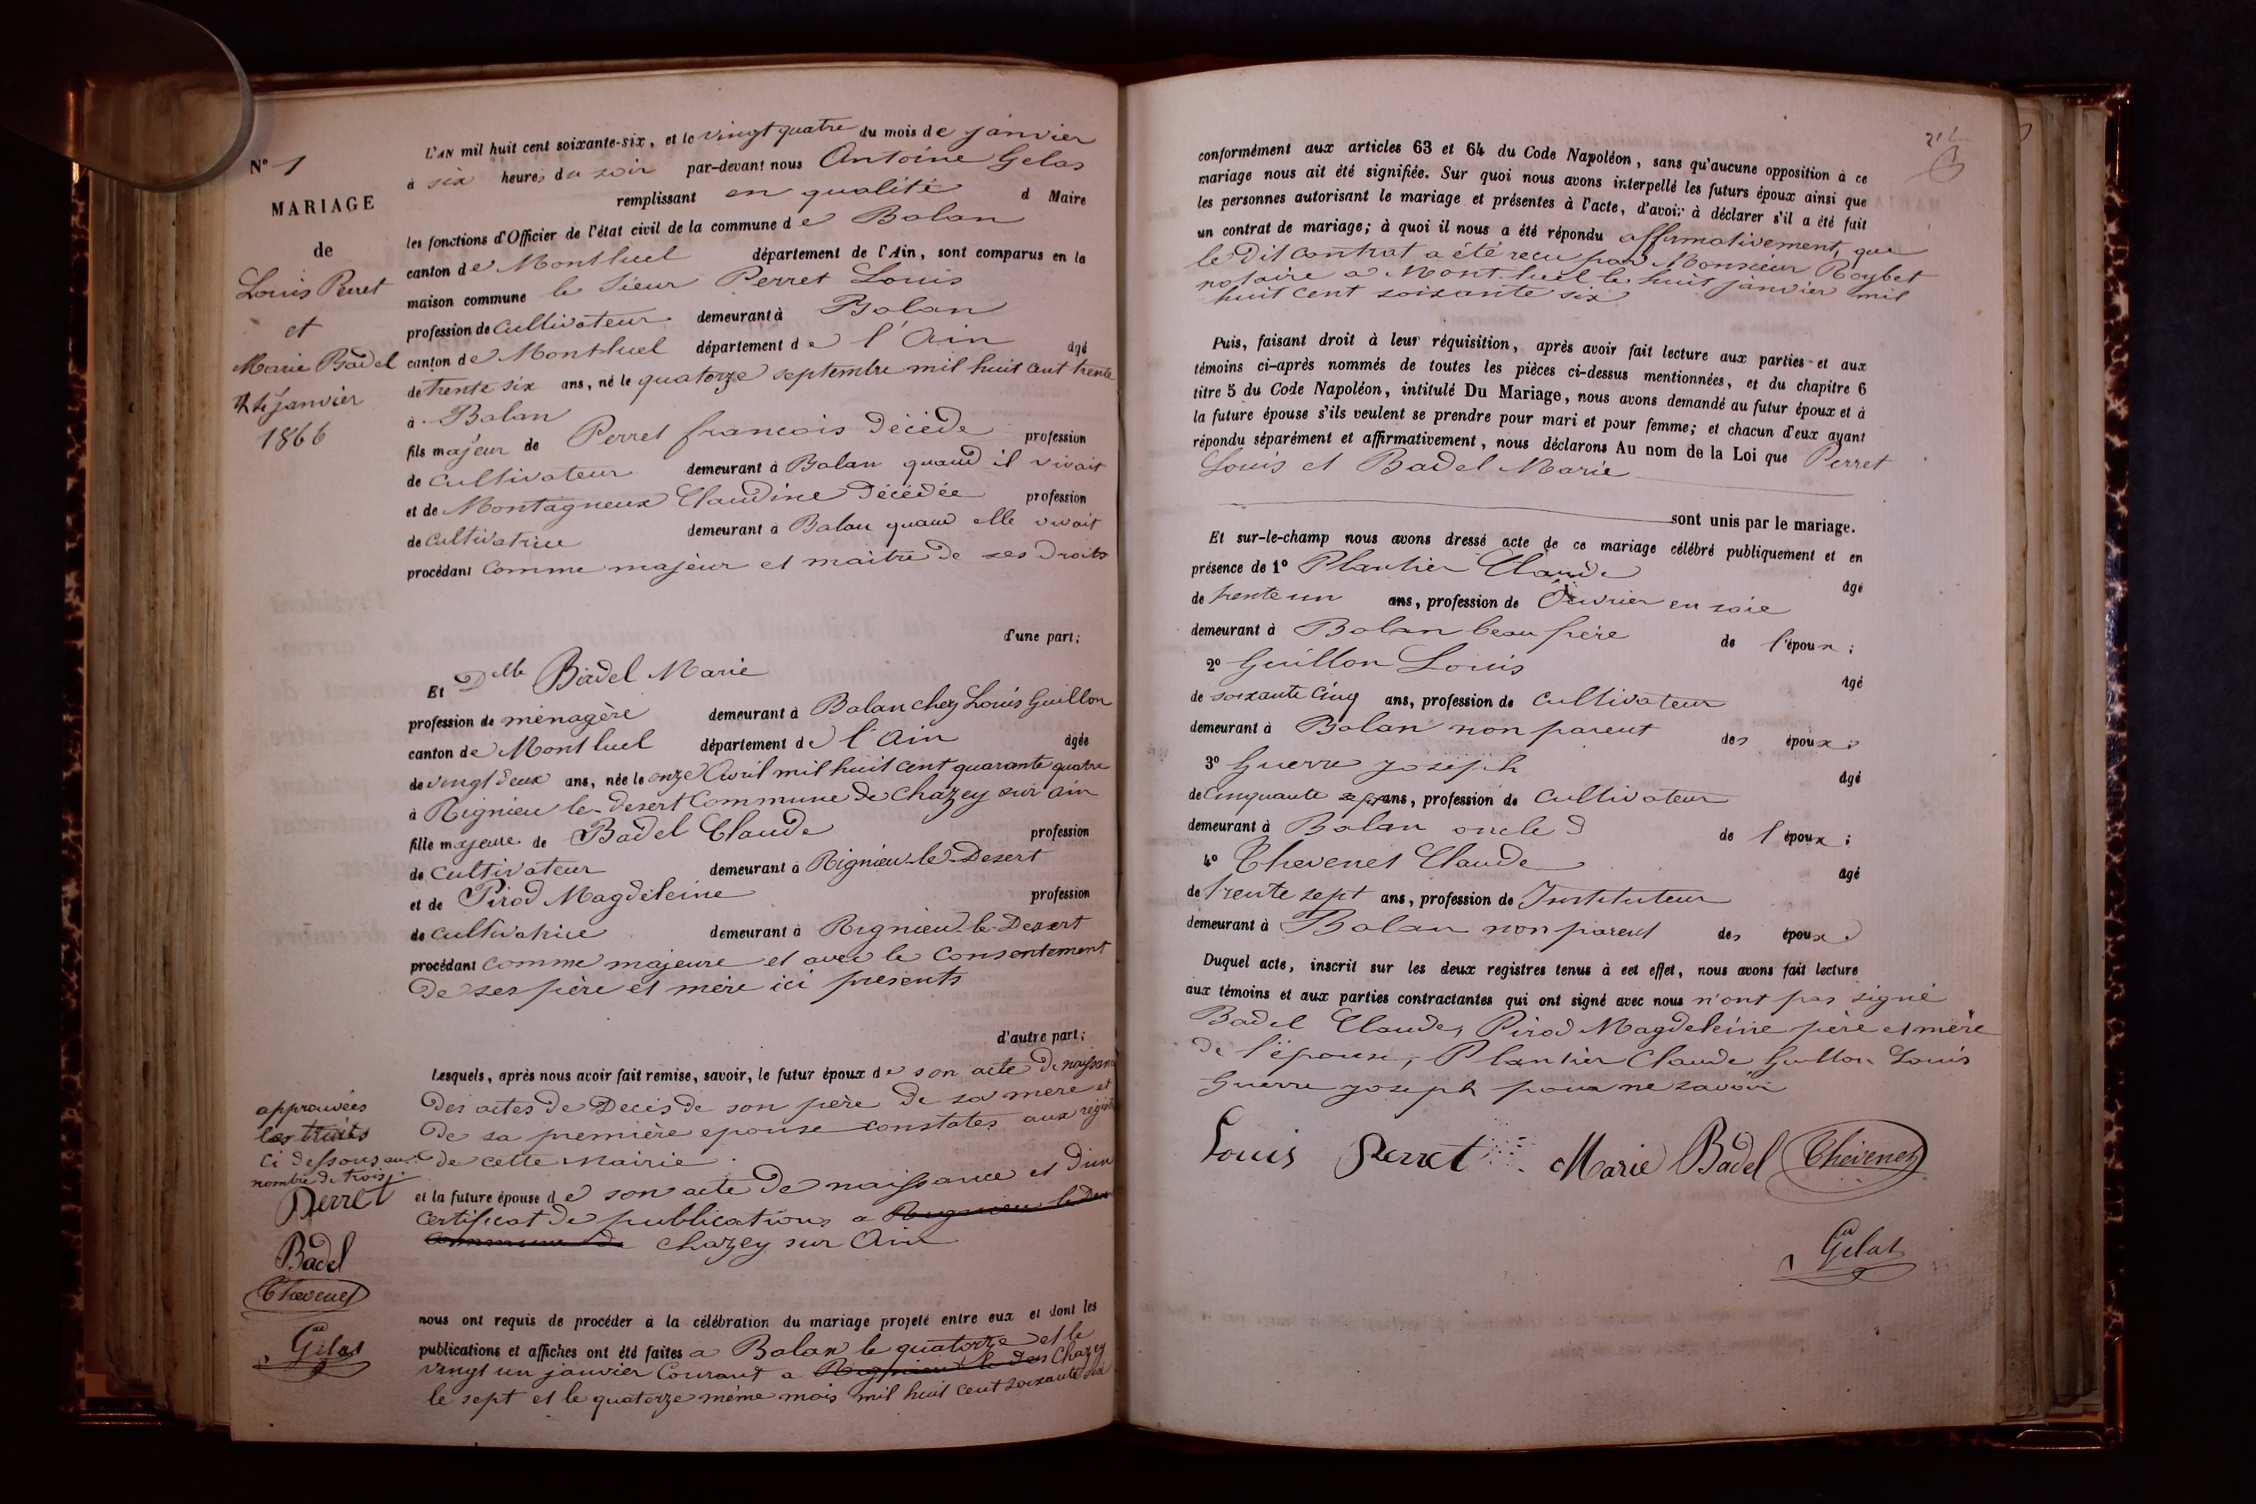 N° 1
MARIAGE
de
Louis Perret
et
Marie Badel
24 janvier
1866
L'AN mil huit cent soixante-six, et le vingt quatre du mois de janvier
à six heures du soir par-devant nous Antoine Gelas
remplissant en qualité d Maire
les fonctions d'Officier de l'état civil de la commune de Balan
canton de Montluel département de l'Ain, sont comparus en la
maison commune le Sieur Perret Louis
profession de Cultivateur demeurant à Balan
canton de Montluel département de l'Ain âgé
de trente six ans, né le quatorze septembre mil huit cent trente
à Balan
fils majeur de Perret francois décédé profession
de cultivateur demeurant à Balan quand il vivait
et de Montagneux Claudine Décédée profession
de cultivatrice demeurant à Balan quand elle vivait
procédant comme majeur et maitre de ses droits
d'une part;
Et Dlle Badel Marie
profession de ménagère demeurant à Balan chez Louis Guillon
canton de Montluel département de l'Ain âgée
de vingt deux ans, née le onze Avril mil huit cent quarante quatre
à Rignieu le-desert Commune de Chazey sur ain
fille majeure de Badel Claude profession
de cultivateur demeurant à Rignieu-le-Desert
et de Pirod Magdeleine profession
de cultivatrice demeurant à Rignieu-le-Desert
procédant comme majeure et avec le Consentement
de ses père et mère ici presents
d'autre part;
Lesquels, après nous avoir fait remise, savoir, le futur époux de son acte de naissance
des actes de Deces de son père de sa mere et
de sa première epouse constates aux registres
de cette Mairie.
et la future épouse de son acte de naissance et d'un
certificat de publications a Rignieu le Des
commune de Chazey sur Ain
approuvées
les traits
ci dessous au
nombre de trois
Perret
Badel
Thevenet
Gelas
nous ont requis de procéder à la célébration du mariage projeté entre eux et dont les
publications et affiches ont été faites a Balan le quatorze et le
vingt un janvier Courant a Rignieu le des Chazey
le sept et le quatorze même mois mil huit cent soixante six
conformément aux articles 63 et 64 du Code Napoléon, sans qu'aucune opposition à ce
mariage nous ait été signifiée. Sur quoi nous avons interpellé les futurs époux ainsi que
les personnes autorisant le mariage et présentes à l'acte, d'avoir à déclarer s'il a été fait
un contrat de mariage; à quoi il nous a été répondu affirmativement, que
le Dit Contrat a été recu par Monsieur Roybet
notaire a Montluel le huit janvier mil
huit cent soixante six
Puis, faisant droit à leur réquisition, après avoir fait lecture aux parties et aux
témoins ci-après nommés de toutes les pièces ci-dessus mentionnées, et du chapitre 6
titre 5 du Code Napoléon, intitulé Du Mariage, nous avons demandé au futur époux et à
la future épouse s'ils veulent se prendre pour mari et pour femme; et chacun d'eux ayant
répondu séparément et affirmativement, nous déclarons Au nom de la Loi que Perret
Louis et Badel Marie
sont unis par le mariage.
Et sur-le-champ nous avons dressé acte de ce mariage célébré publiquement et en
présence de 1° Plantier Claude âgé
de trente un ans, profession de Ouvrier en soie
demeurant à Balan beau frère de l'époux;
2° Guillon Louis âgé
de soixante cinq ans, profession de cultivateur
demeurant à Balan non parent des époux;
3° Guerre joseph âgé
de Cinquante sept ans, profession de cultivateur
demeurant à Balan oncle de l'époux;
4° Thevenet Claude âgé
de trente sept ans, profession de Instituteur
demeurant à Balan non parent des époux
Duquel acte, inscrit sur les deux registres tenus à cet effet, nous avons fait lecture
aux témoins et aux parties contractantes qui ont signé avec nous n'ont pas signé
Badel Claude, Pirod Magdeleine père et mère
de l'épouse, Plantier Claude Guillon Louis
Guerre joseph pour ne savoir
Louis Perret Marie Badel Thevenet
Gelas